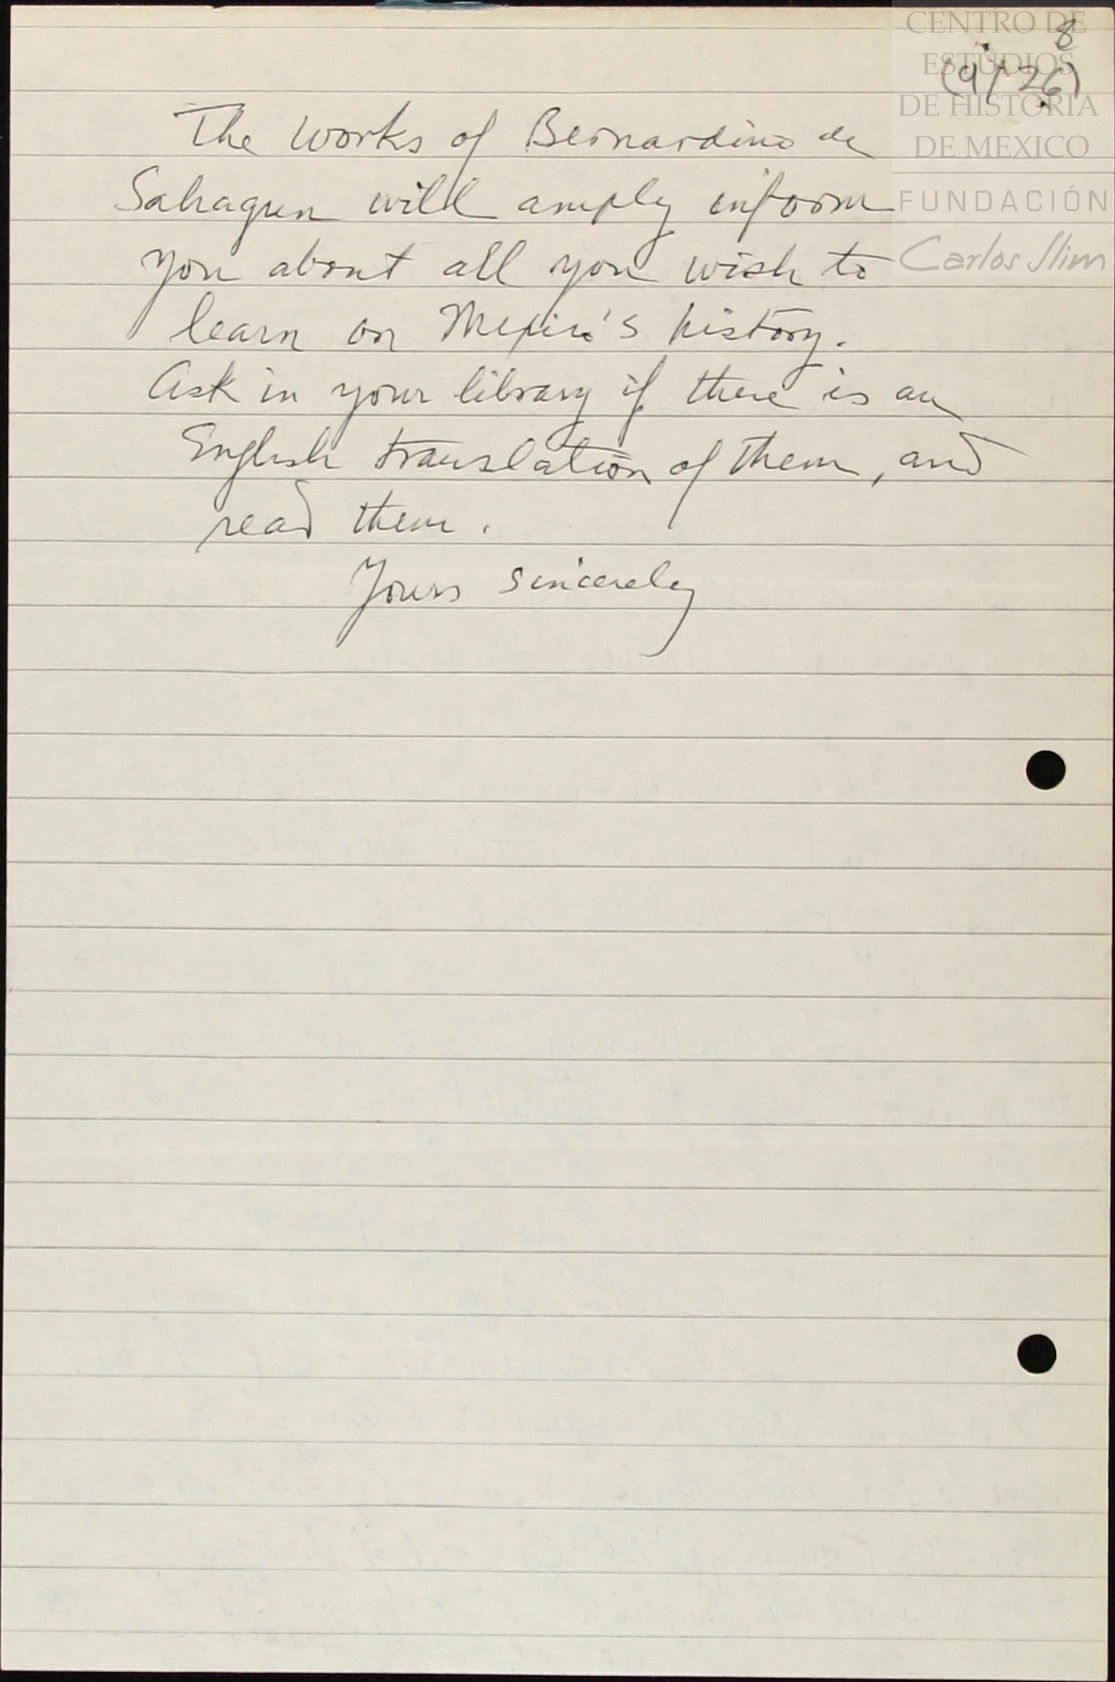 CENTRO DE
ESTUDIOS
DE HISTORIA
DE MEXICO
FUNDACIÓN
Carlos Slim
8
(9/26)
The works of Bernardino de
Sahagun will amply inform
you about all you wish to
learn on Mexico's history.
Ask in your library if there is an
English translation of them, and
read them.
Yours sincerely